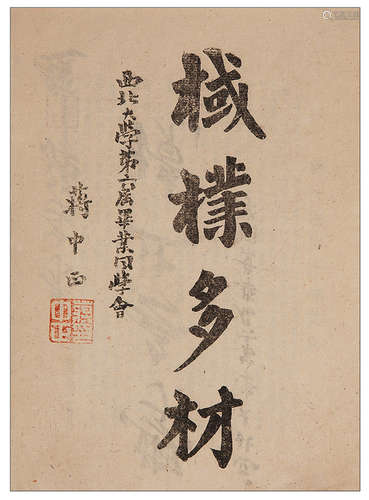 棫樸多材
西北大學第六屆畢業同學會
蔣中正